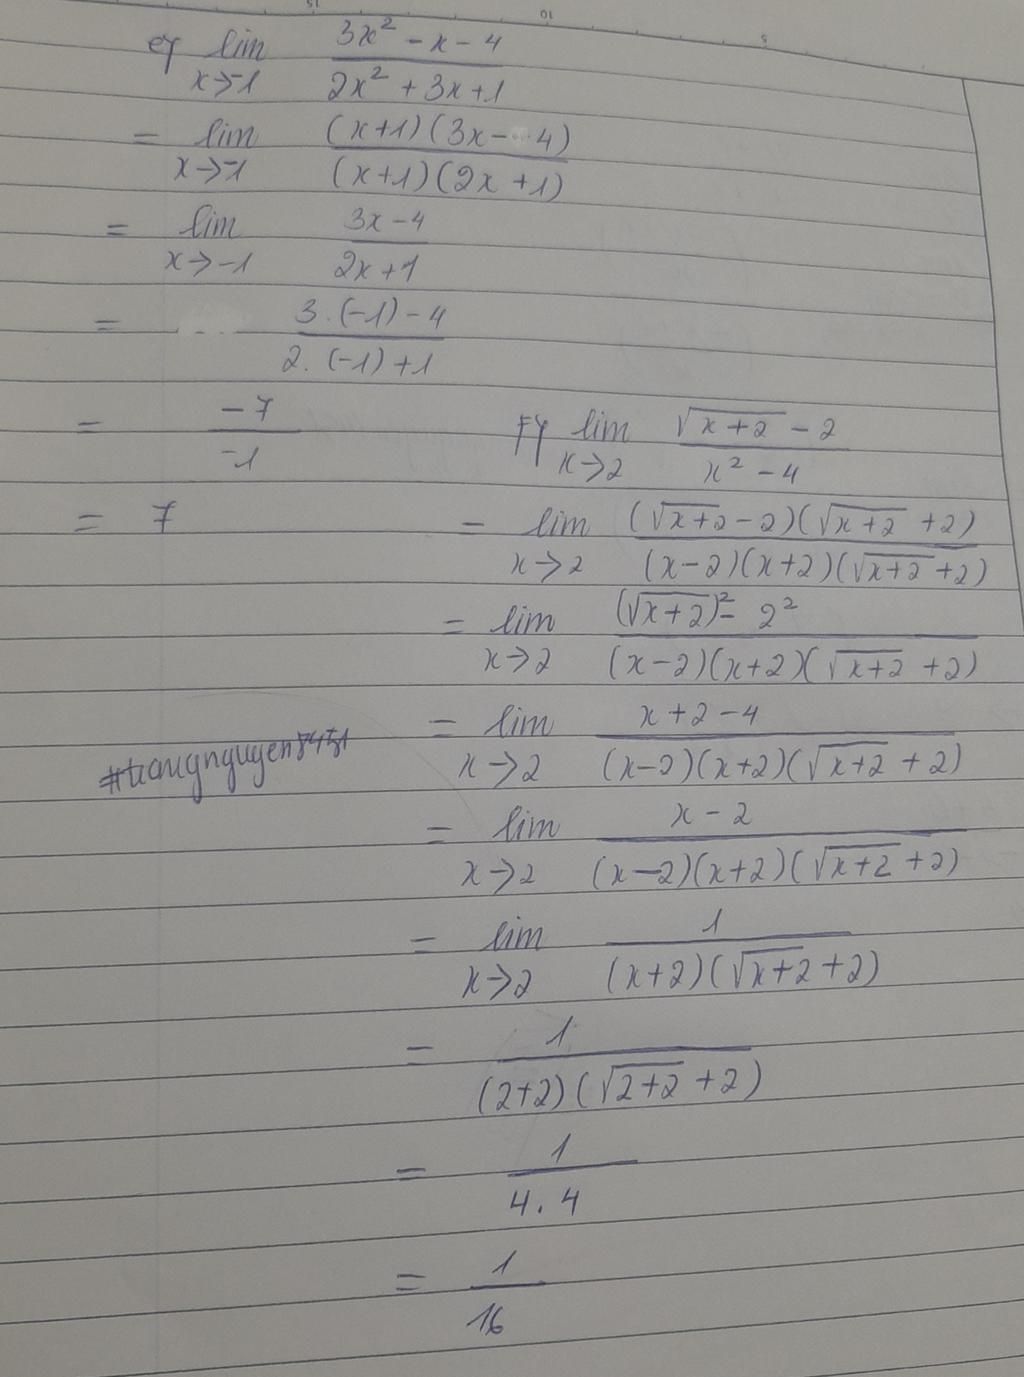 e) lim x→-1 (3x² - x - 4)/(2x² + 3x + 1)
= lim x→-1 ((x+1)(3x-4))/((x+1)(2x+1))
= lim x→-1 (3x-4)/(2x+1)
= (3.(-1)-4)/(2.(-1)+1)
= -7/-1
= 7
f) lim x→2 (√(x+2) - 2)/(x² - 4)
= lim x→2 ((√(x+2) - 2)(√(x+2) + 2))/((x-2)(x+2)(√(x+2) + 2))
= lim x→2 ((√(x+2))² - 2²)/((x-2)(x+2)(√(x+2) + 2))
= lim x→2 (x+2-4)/((x-2)(x+2)(√(x+2) + 2))
= lim x→2 (x-2)/((x-2)(x+2)(√(x+2) + 2))
= lim x→2 1/((x+2)(√(x+2) + 2))
= 1/((2+2)(√(2+2) + 2))
= 1/(4.4)
= 1/16